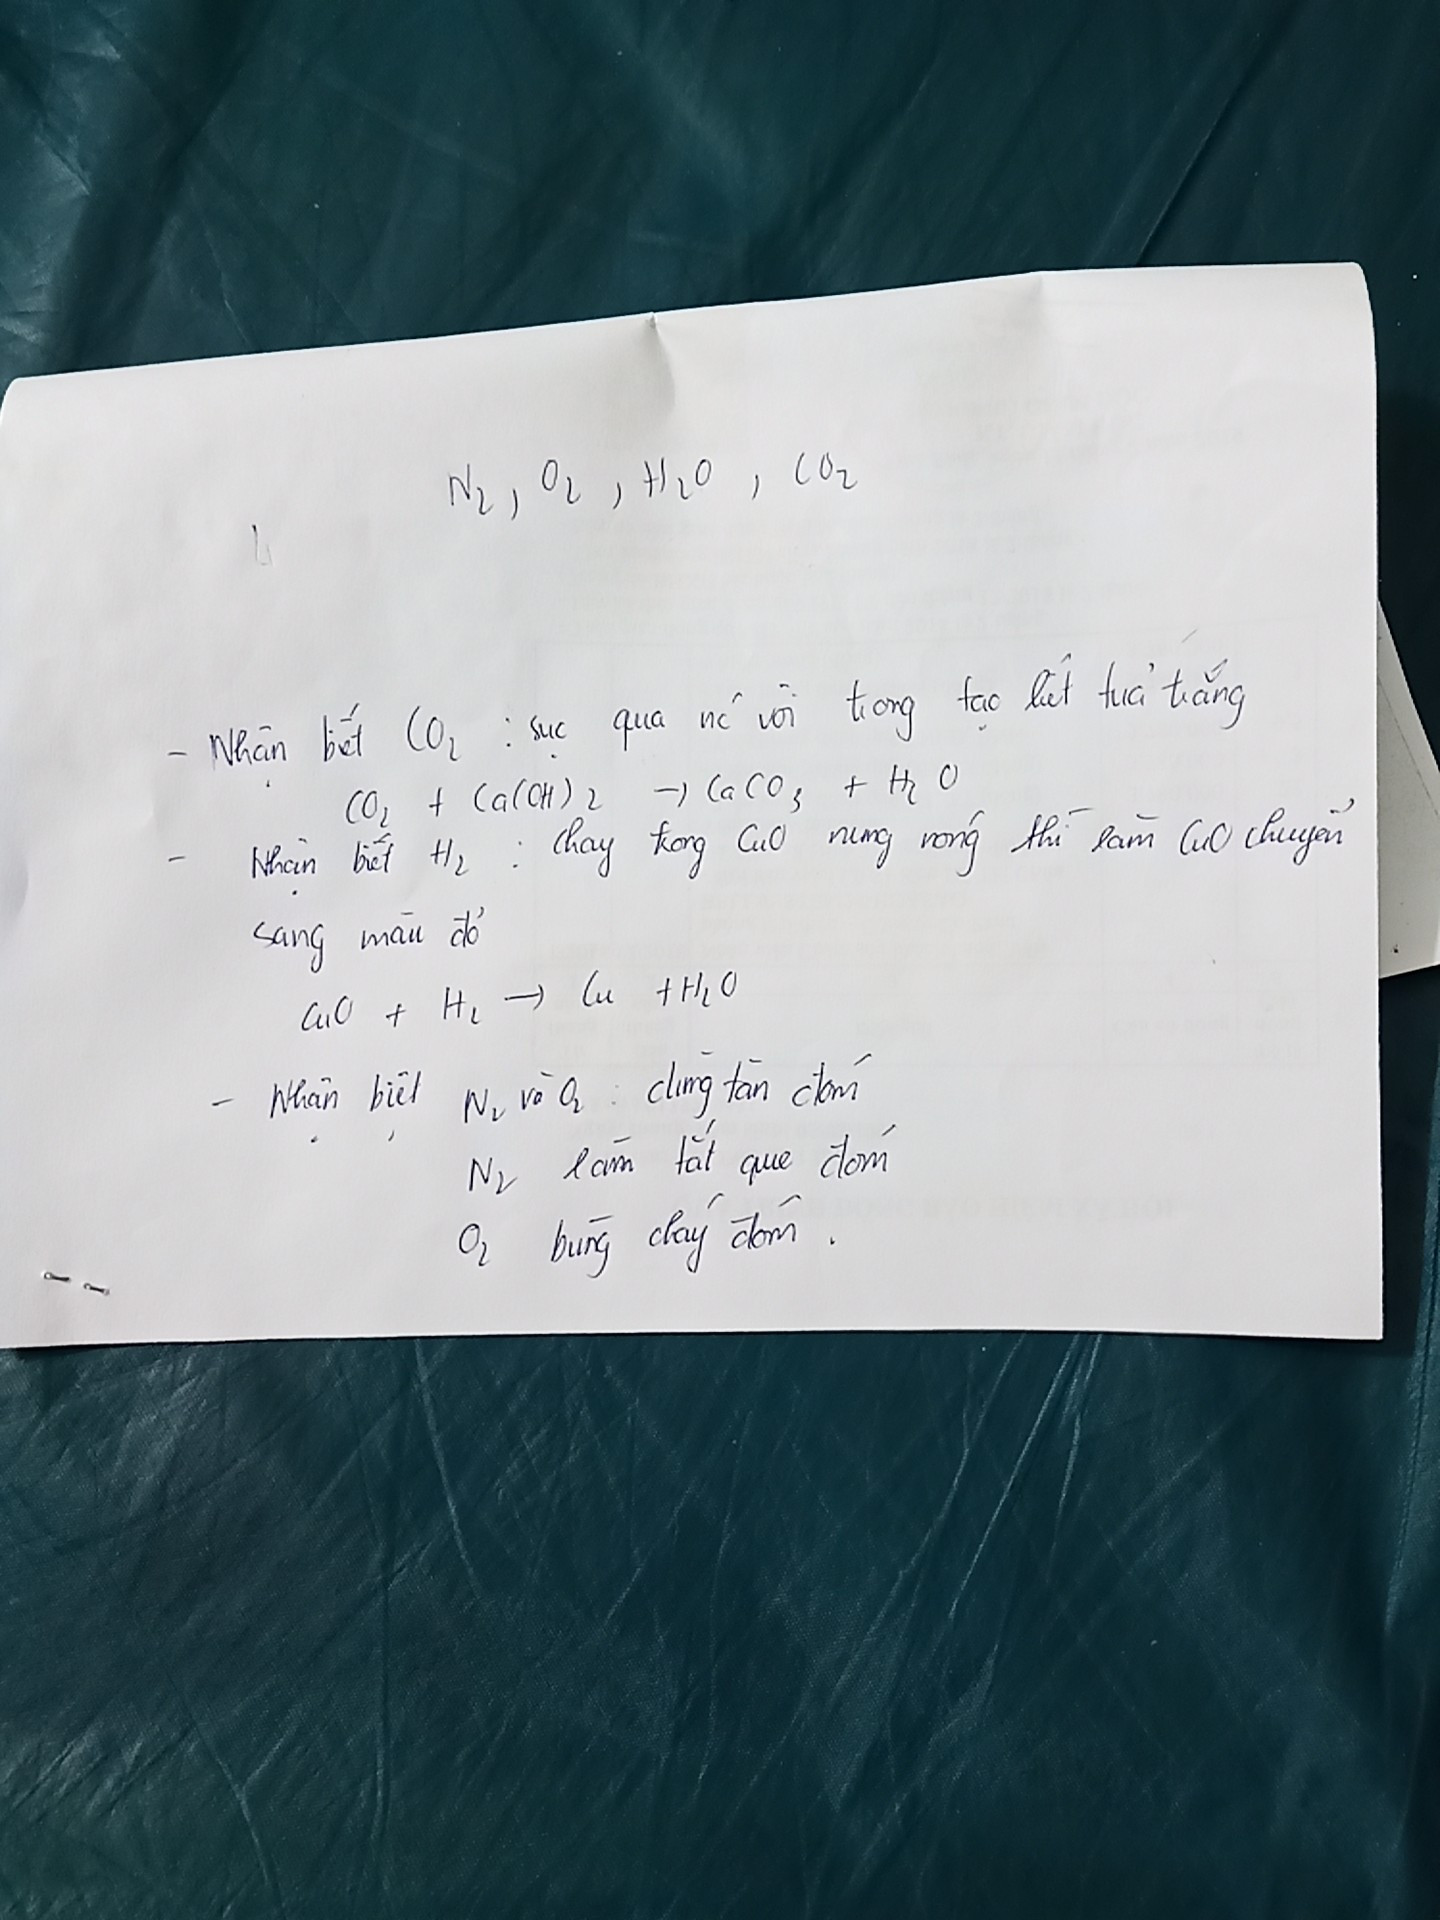 N₂, O₂, H₂O, CO₂
- Nhận biết CO₂ : sục qua nc' vôi trong tạo kết tủa trắng
CO₂ + Ca(OH)2 → CaCO₃ + H₂O
- Nhận biết H₂ : chay trong CuO nung nóng thì làm CuO chuyển
sang màu đỏ
CuO + H₂ → Cu + H₂O
- Nhận biết N₂ và O₂ : dùng tàn đóm
N₂ làm tắt que đóm
O₂ bùng cháy đóm.